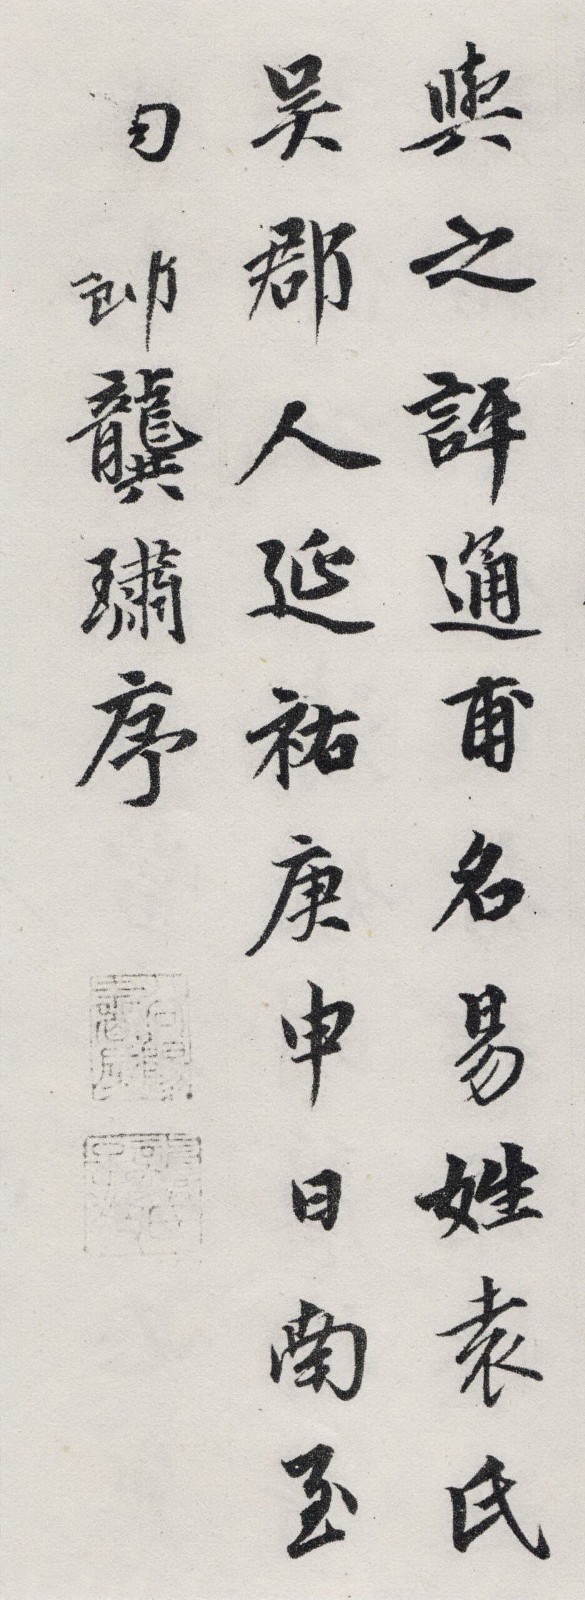 與之評通甫名易姓袁氏
吳郡人延祐庚申日南至
龔璛序